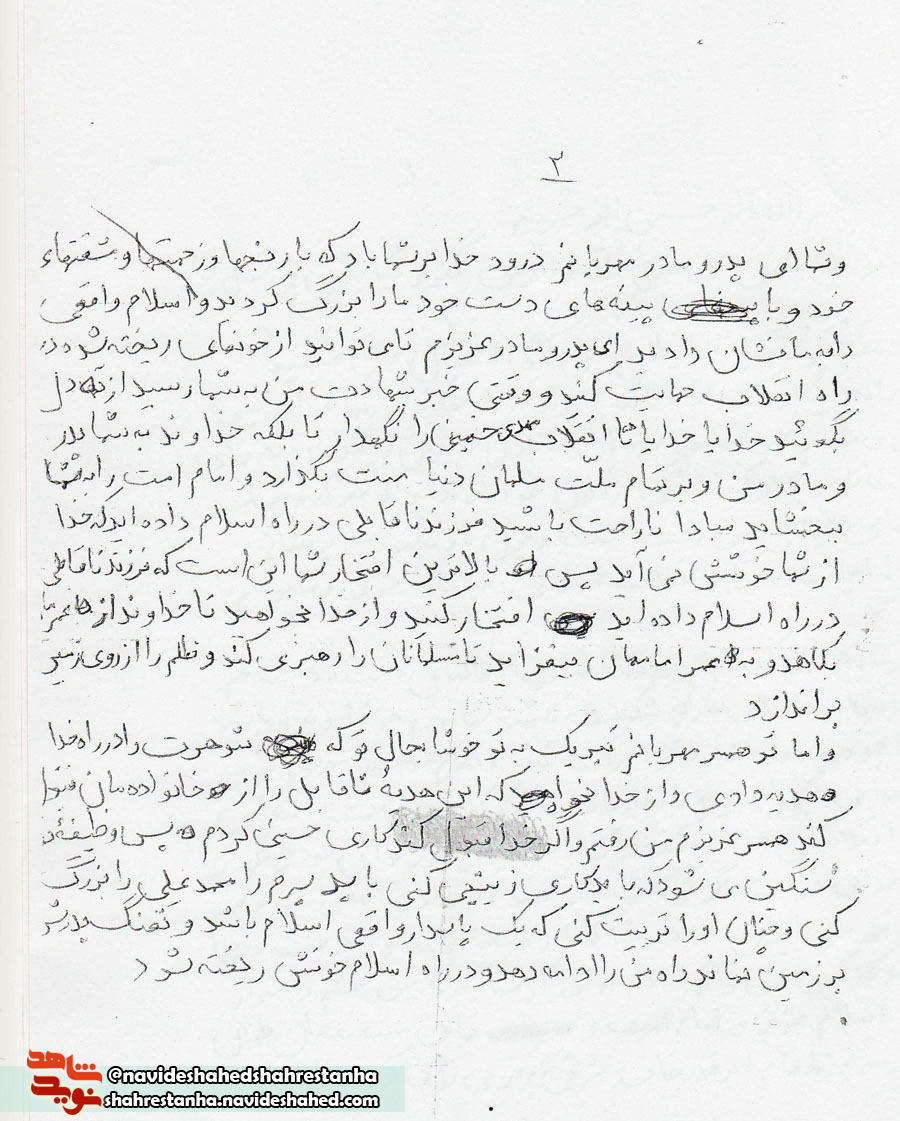 ۳
وشما ای پدر و مادر مهربانم درود خدا بر شما باد که با رنجها و زحمتها و مشقتهای
خود و با پینه های دست خود ما را بزرگ کردید و اسلام واقعی
را به ما نشان دادید ای پدر و مادر عزیزم تا می توانید از خونهای ریخته شده در
راه انقلاب حمایت کنید و وقتی خبر شهادت من به شما رسید از ته دل
بگوئید خدایا خدایا تا انقلاب مهدی خمینی را نگهدار تا بلکه خداوند به شما پدر
و مادر من و بر تمام ملت مسلمان دنیا منت بگذارد و امام امت را به شما
ببخشاید مبادا ناراحت باشید فرزند ناقابلی در راه اسلام داده اید که خدا
از شما خوشش می آید پس بالاترین افتخار شما این است که فرزند ناقابلی
در راه اسلام داده اید افتخار کنید و از خدا بخواهید تا خداوند از عمر ما
بکاهد و به عمر امامان بیفزاید تا مسلمانان را رهبری کند و ظلم را از روی زمین
براندازد
و اما تو همسر مهربانم تبریک به تو خوشا بحال تو که شوهرت را در راه خدا
هدیه دادی و از خدا بخواهید که این هدیهٔ ناقابل را از خانواده مان قبول
کند همسر عزیزم من رفتم و اگر خدا قبول کند کاری حسینی کردم پس وظیفهٔ تو
سنگین می شود که باید کاری زینبی کنی باید پسرم را محمد علی را بزرگ
کنی و چنان او را تربیت کنی که یک پاسدار واقعی اسلام باشد و تفنگ پدرش
بر زمین نماند راه من را ادامه دهد و در راه اسلام خونش ریخته شود
شاهد
نوید
@navideshahedshahrestanha
shahrestanha.navideshahed.com